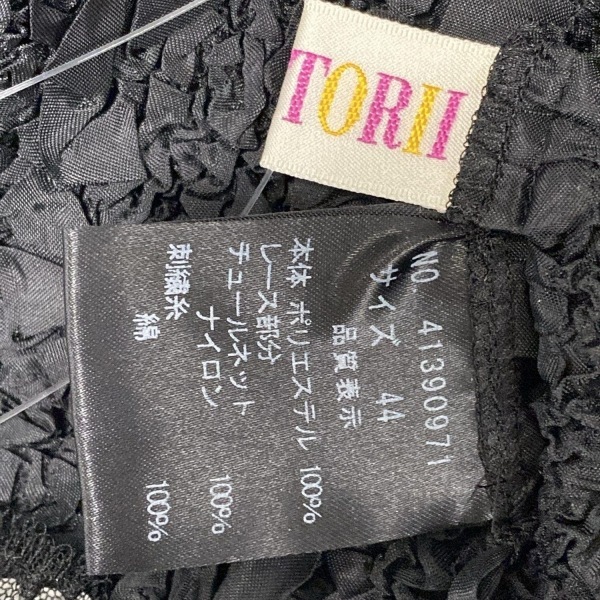 TORII
NO 41390971
サイズ 44
品質表示
本体 ポリエステル 100%
レース部分
チュールネット
ナイロン 100%
刺繍糸
綿 100%